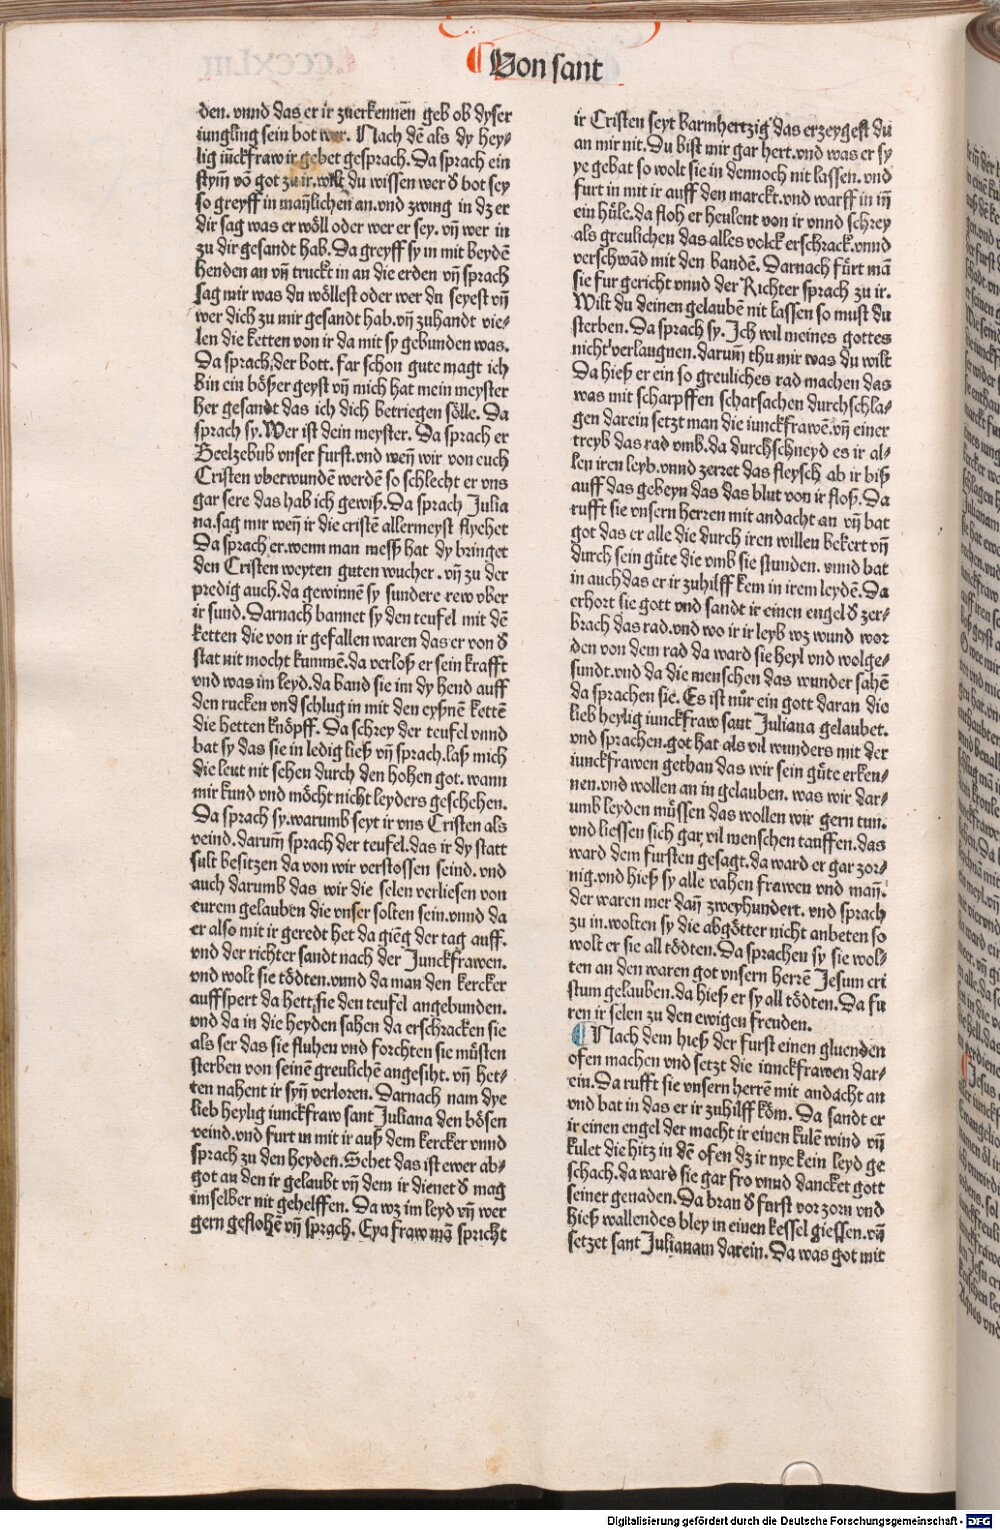 Von sant
den. vnnd das er ir zuerkennen̄ geb ob dyser
iungling sein bot wer. Nach dē als dy hey⸗
lig iūckfraw ir gebet gesprach. Da sprach ein
stym̄ vō got zu ir. wilt du wissen wer d̕ bot sey
so greyff in man̄lichen an. vnd zwing in dz er
dir sag was er wöll oder wer er sey. vn̄ wer in
zu dir gesandt hab. Da greyff sy in mit beydē
henden an vn̄ truckt in an die erden vn̄ sprach
sag mir was du wöllest oder wer du seyest vn̄
wer dich zu mir gesandt hab. vn̄ zuhandt vie⸗
len die ketten von ir da mit sy gebunden was.
Da sprach der bott. far schon gute magt ich
bin ein bößer geyst vn̄ mich hat mein meyster
her gesandt das ich dich betriegen sölle. Da
sprach sy. Wer ist dein meyster. Da sprach er
Beelzebub vnser furst. vnd wen̄ wir von euch
Cristen vberwundē werdē so schlecht er vns
gar sere das hab ich gewiß. Da sprach Julia
na. sag mir wen̄ ir die cristē allermeyst flychet
Da sprach er. wenn man mess hat dy bringet
den Cristen weyten guten wucher. vn̄ zu der
predig auch. da gewinnē sy sundere rew vber
ir sund. Darnach bannet sy den teufel mit dē
ketten die von ir gefallen waren das er von d̕
stat nit mocht kummē. da verloß er sein krafft
vnd was im leyd. da band sie im dy hend auff
den rucken vnd schlug in mit den eyßnē kettē
die hetten knöpff. Da schrey der teufel vnnd
bat sy das sie in ledig ließ vn̄ sprach. laß mich
die leut nit sehen durch den hohen got. wann
mir kund vnd möcht nicht leyders geschehen.
Da sprach sy. warumb seyt ir vns Cristen als
veind. darum̄ sprach der teufel. das ir dy statt
sult besitzen da von wir verstossen seind. vnd
auch darumb das wir die selen verliesen von
eurem gelauben die vnser solten sein. vnnd da
er also mit ir geredt het da giēg der tag auff.
vnd der richter sandt nach der Junckfrawen.
vnd wolt sie tödten. vnnd da man den kercker
auffspert da hett sie den teufel angebunden.
vnd da in die heyden sahen da erschracken sie
als ser das sie fluhen vnd forchten sie müsten
sterben von seinē greulichē angesiht. vn̄ het⸗
ten nahent ir syn̄ verloren. Darnach nam dye
lieb heylig iunckfraw sant Juliana den bösen
veind. vnd furt in mit ir auß dem kercker vnnd
sprach zu den heyden. Sehet das ist ewer ab⸗
got an den ir gelaubt vn̄ dem ir dienet d̕ mag
imselber nit gehelffen. Da wz im leyd vn̄ wer
gern geflohē vn̄ sprach. Eya fraw mā spricht
ir Cristen seyt barmhertzig das erzeygest du
an mir nit. Du bist mir gar hert. vnd was er sy
ye gebat so wolt sie in dennoch nit lassen. vnd
furt in mit ir auff den marckt. vnd warff in in̄
ein hüle. da floh er heulent von ir vnnd schrey
als greulichen das alles volck erschrack. vnnd
verschwād mit den bandē. Darnach fürt mā
sie fur gericht vnnd der Richter sprach zu ir.
Wilt du deinen gelaubē nit lassen so must du
sterben. Da sprach sy. Ich wil meines gottes
nicht verlaugnen. darum̄ thu mir was du wilt
Da hieß er ein so greuliches rad machen das
was mit scharpffen scharsachen durchschla⸗
gen darein setzt man die iunckfrawē. vn̄ einer
treyb das rad vmb. da durchschneyd es ir al⸗
len iren leyb. vnnd zerret das fleysch ab ir biß
auff das gebeyn das das blut von ir floß. Da
rufft sie vnsern herren mit andacht an vn̄ bat
got das er alle die durch iren willen bekert vn̄
durch sein güte die vmb sie stunden. vnnd bat
in auch das er ir zuhilff kem in irem leydē. Da
erhort sie gott vnd sandt ir einen engel d̕ zer⸗
brach das rad. vnd wo ir ir leyb wz wund wor
den von dem rad da ward sie heyl vnd wolge⸗
sundt. vnd da die menschen das wunder sahē
da sprachen sie. Es ist nür ein gott daran die
lieb heylig iunckfraw sant Juliana gelaubet.
vnd sprachen. got hat als vil wunders mit der
iunckfrawen gethan das wir sein güte erken⸗
nen. vnd wollen an in gelauben. was wir dar⸗
umb leyden müssen das wollen wir gern tun.
vnd liessen sich gar vil menschen tauffen. das
ward dem fursten gesagt. da ward er gar zor⸗
nig. vnd hieß sy alle vahen frawen vnd man̄.
der waren mer dan̄ zweyhundert. vnd sprach
zu in. wolten sy die abgötter nicht anbeten so
wolt er sie all tödten. Da sprachen sy sie wol⸗
ten an den waren got vnsern herrē Jesum cri
stum gelauben. da hieß er sy all tödten. Da fu
ren ir selen zu den ewigen freuden.
Nach dem hieß der furst einen gluenden
ofen machen vnd setzt die iunckfrawen dar⸗
ein. Da rufft sie vnsern herrē mit andacht an
vnd bat in das er ir zuhilff köm. Da sandt er
ir einen engel der macht ir einen kulē wind vn̄
kulet die hitz in dē ofen dz ir nye kein leyd ge
schach. da ward sie gar fro vnnd dancket gott
seiner genaden. Da bran d̕ furst vor zorn vnd
hieß wallendes bley in einen kessel giessen. vn̄
setzet sant Julianam darein. Da was got mit
Digitalisierung gefördert durch die Deutsche Forschungsgemeinschaft - DFG